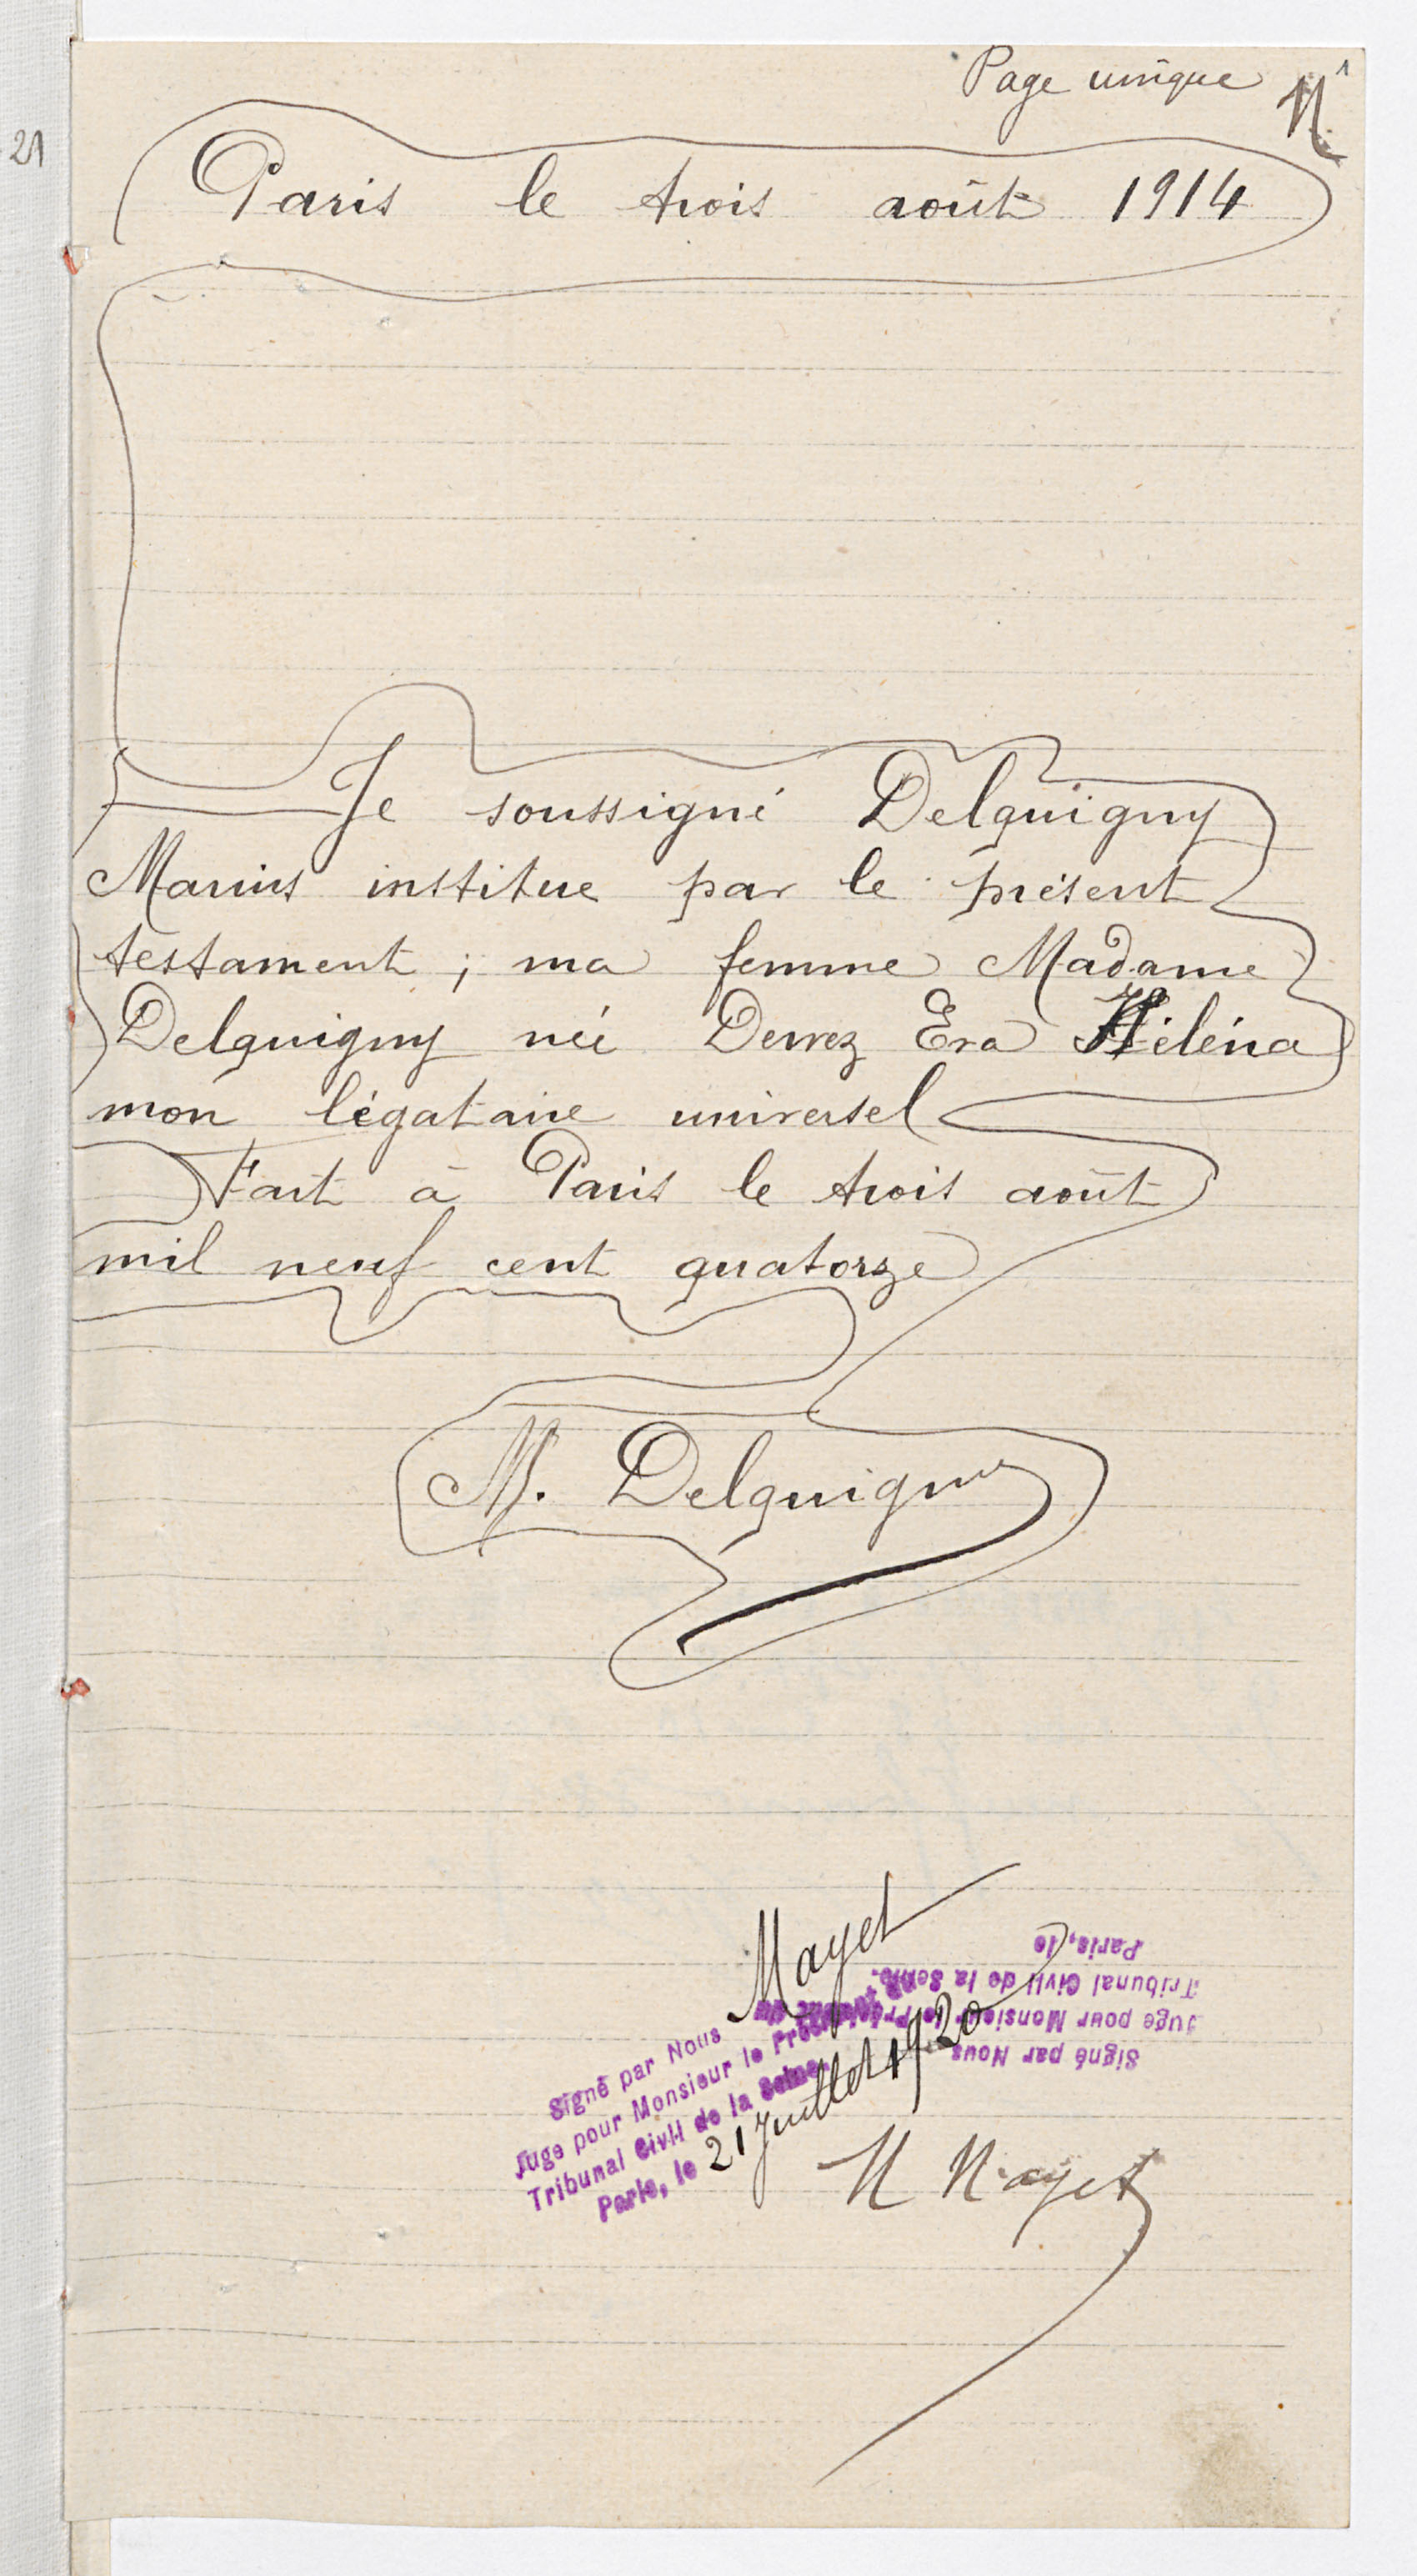 Page unique
21
Paris le trois août 1914
Je soussigné Delquigny
Marius institue par le présent
testament ; ma femme Madame
Delquigny née Devrez Eva Héléna
mon légataire universel
Fait à Paris le trois août
mil neuf cent quatorze
M. Delquigny
Signé par Nous Mayet
Juge pour Monsieur le Président du
Tribunal Civil de la Seine.
Paris, le 21 Juillet 1920
Signé par Nous
Juge pour Monsieur le Président du
Tribunal Civil de la Seine.
Paris, le
Mayet